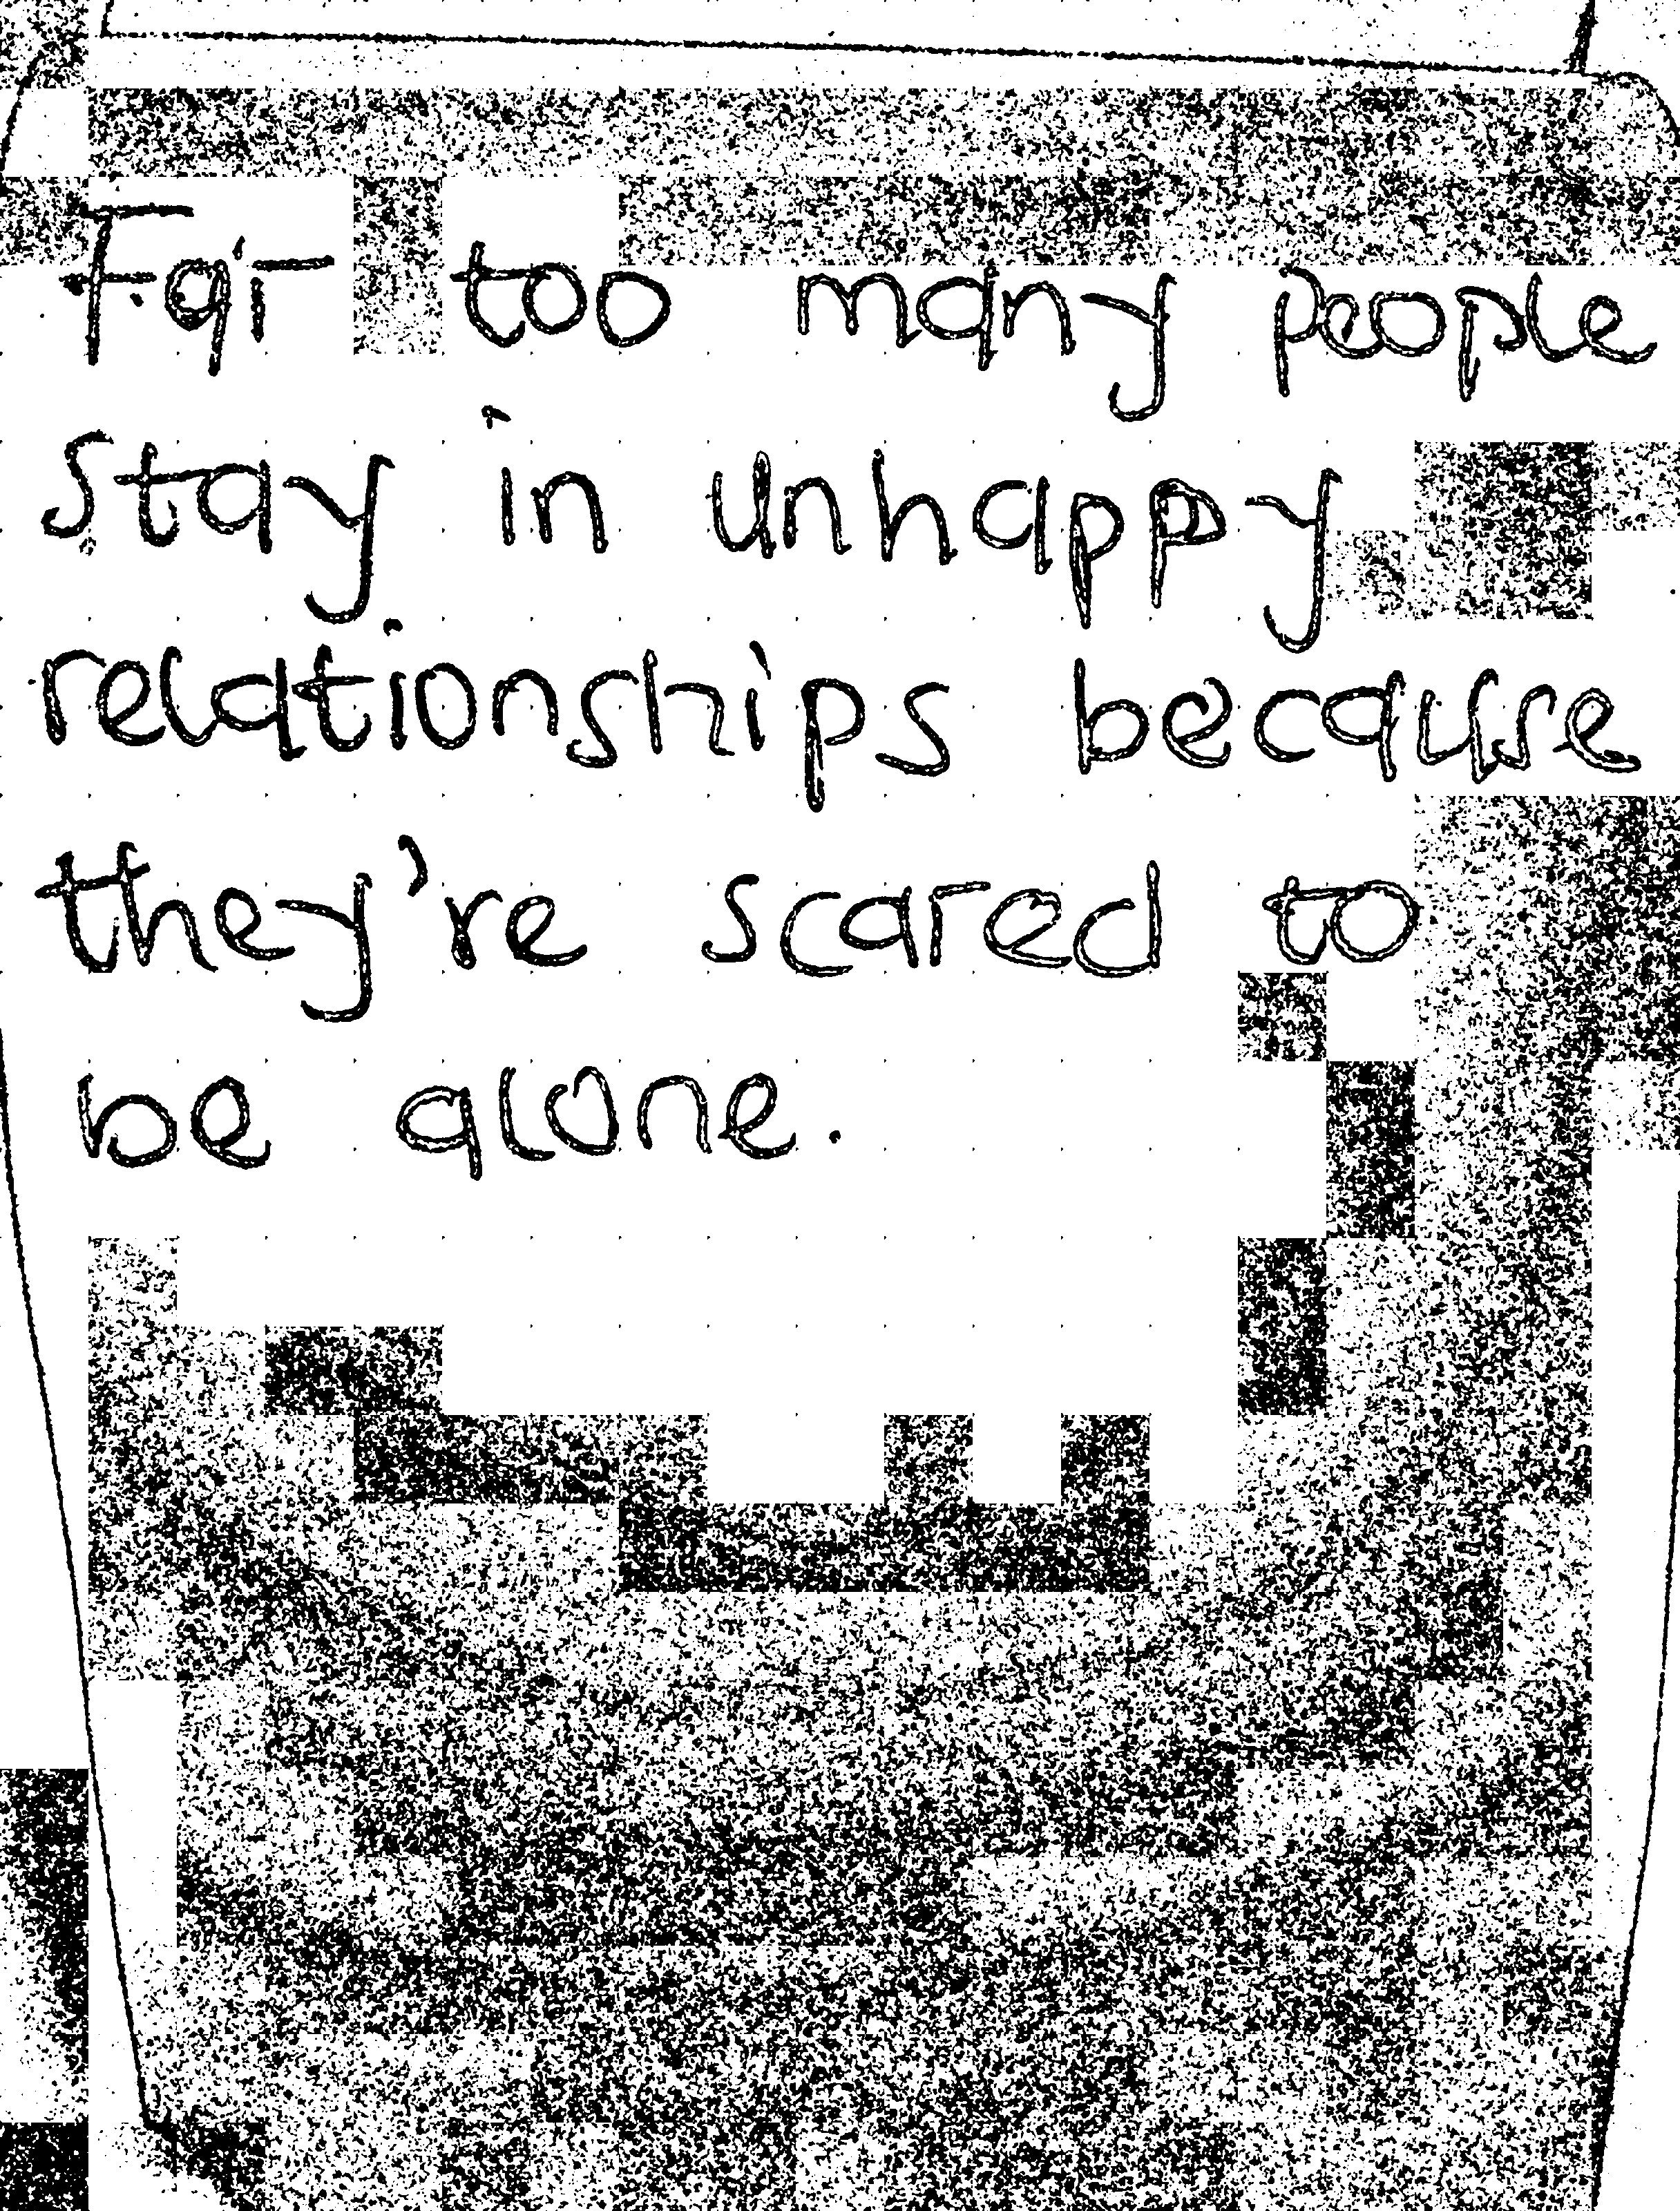 Far too many people
stay in unhappy
relationships because
they're scared to
be alone.